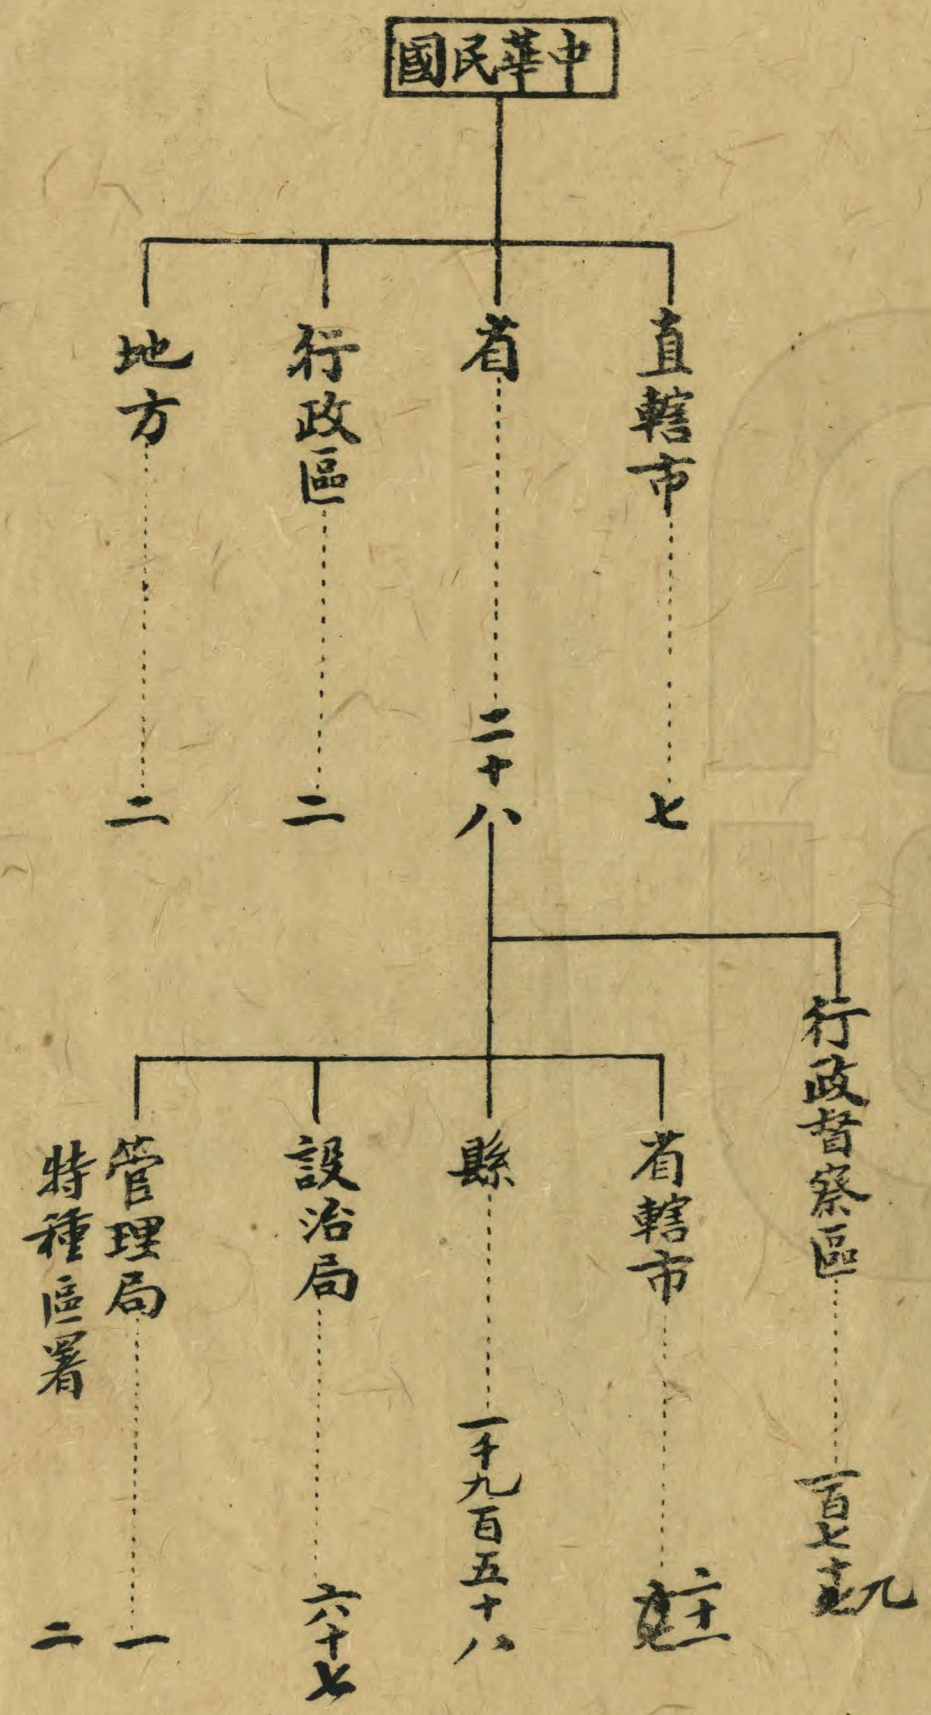 中華民國
直轄市 七
省 二十八
行政區 二
地方 二
行政督察區 一百七十九
省轄市
縣 一千九百五十八
設治局 六十七
管理局 一
特種區署 二